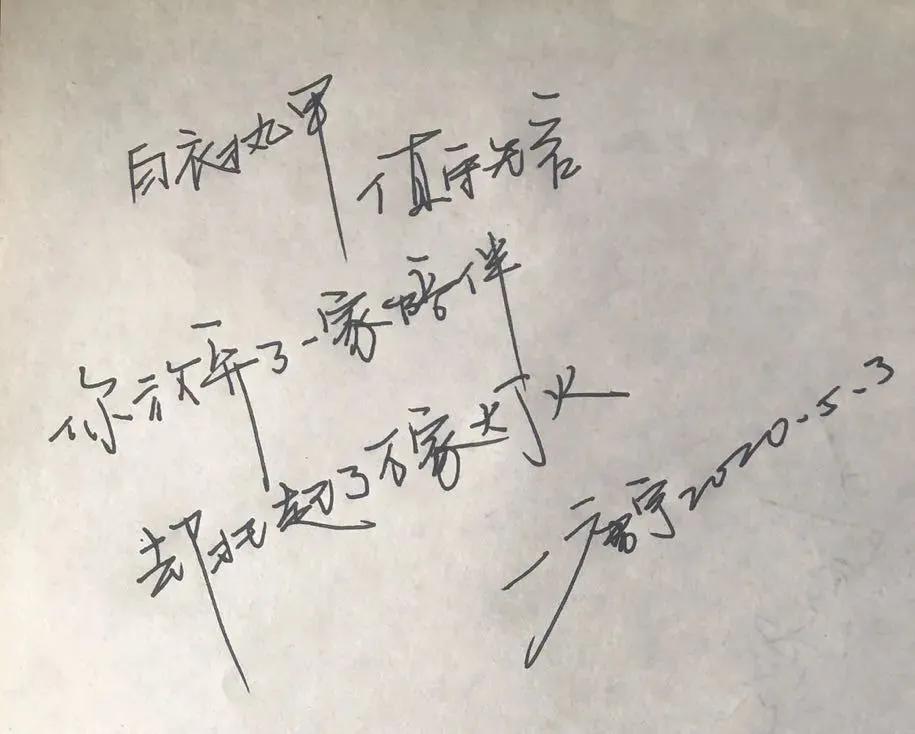 白衣执甲 值守无言
你放弃了一家陪伴
却托起了万家灯火
2020.5.3